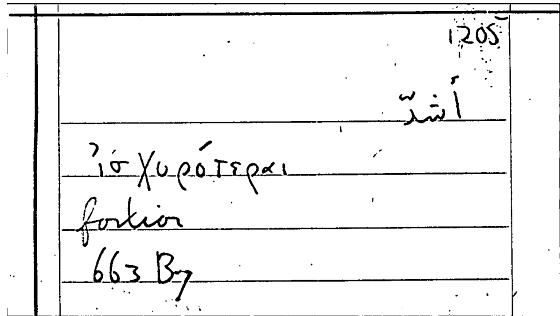 1205
ἰσχυρότεραι
fortior
663 B7